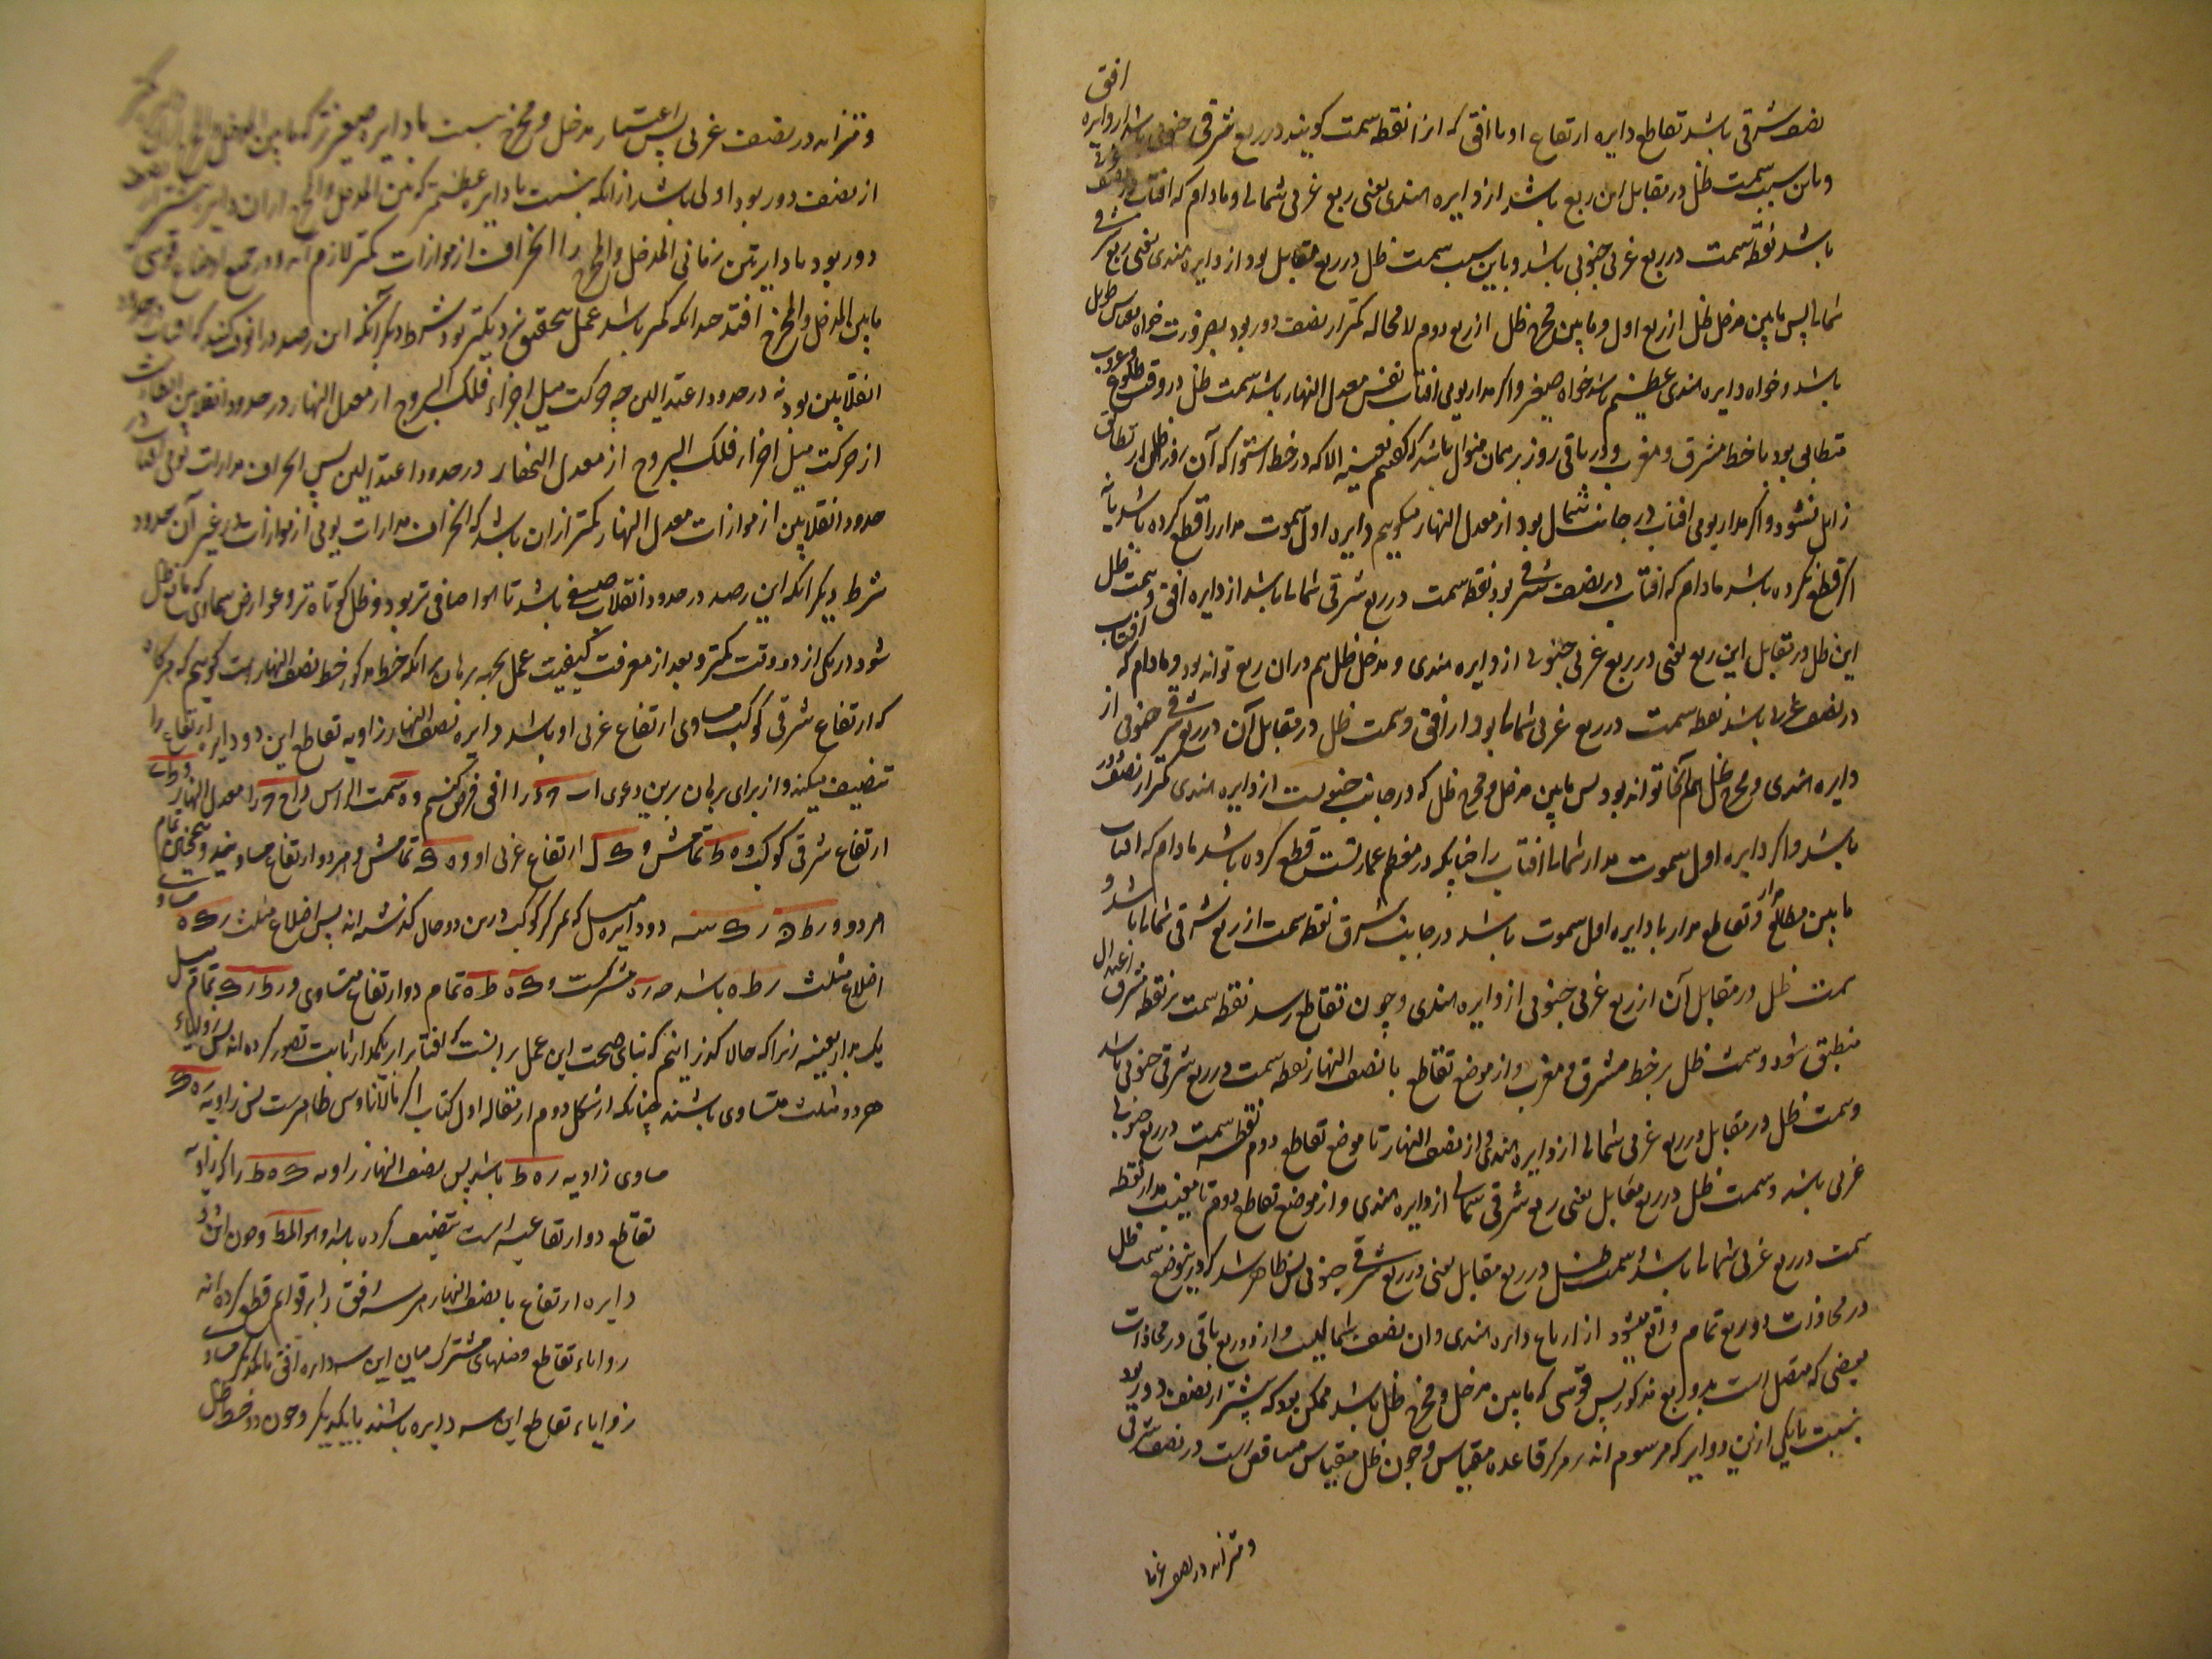 نصف شرقی باشد تقاطع دایره ارتفاع او با افق که انرا نقطه سمت کویند در ربع شرقی جنوبی باشد از دایره افق
و باین سبب سمت ظل در مقابل این ربع باشد از دایره هندی یعنی ربع غربی شمالی و مادام که افتاب در نصف غربی
باشد نقطه سمت در ربع غربی جنوبی باشد و باین سبب سمت ظل در ربع مقابل بود از دایره هندی یعنی ربع شرقی
شمالی پس مابین مدخل ظل از ربع اول و مابین مخرج ظل از ربع دوم لا محاله کمتر از نصف دور بود بضرورت خواه مقیاس طویل
باشد و خواه دایره هندی عظیم باشد خواه صغیر و اکر مدار یومی افتاب نفس معدل النهار باشد سمت ظل در وقت طلوع و غروب
متطابق بود با خط مشرق و مغرب و در باقی روز بر همان منوال باشد که کفتیم بعینه الا که در خط استوا که آن روز ظل از تطابق
زایل نشود و اکر مدار یومی افتاب در جانب شمال بود از معدل النهار میکوییم دایره اول سموت مدار را قطع کرده باشد یا نه
اکر قطع نکرده باشد مادام که افتاب در نصف شرقی بود نقطه سمت در ربع شرقی شمالی باشد از دایره افق و سمت ظل
این ظل در تقابل این ربع یعنی در ربع غربی جنوبی از دایره هندی و مدخل ظل هم در ان ربع تواند بود و مادام که افتاب
در نصف غربی باشد نقطه سمت در ربع غربی شمالی بود از افق و سمت ظل در مقابل آن در ربع شرقی جنوبی از
دایره هندی و مخرج ظل هم آنجا تواند بود پس مابین مدخل و مخرج ظل که در جانب جنوبست از دایره هندی کمتر از نصف دور
باشد و اکر دایره اول سموت مدار شمالی افتاب را چنانکه در معظم عمارتست قطع کرده باشد مادام که افتاب
مابین مطلع مدار و تقاطع مدار با دایره اول سموت باشد در جانب شرق نقطه سمت از ربع شرقی شمالی باشد و
سمت ظل در مقابل آن از ربع غربی جنوبی از دایره هندی و چون بتقاطع رسد نقطه سمت بر نقطه مشرق اعتدال
منطبق شود و سمت ظل بر خط مشرق و مغرب و از موضع تقاطع با نصف النهار نقطه سمت در ربع شرقی جنوبی باشد
و سمت ظل در مقابل در ربع غربی شمالی از دایره هندی و از نصف النهار تا موضع تقاطع دوم نقطه سمت در ربع جنوبی
غربی باشد و سمت ظل در ربع مقابل یعنی ربع شرقی شمالی از دایره هندی و از موضع تقاطع دوم تا مغیب مدار نقطه
سمت در ربع غربی شمالی باشد و سمت ظل در ربع مقابل یعنی در ربع شرقی جنوبی پس ظاهر شد که درین موضع سمت ظل
در محاذات دو ربع تمام واقع میشود از ارباع دایره هندی و ان نصف شمالیست و از دو ربع باقی در محاذات
بعضی که متصل است بدو ربع مذکور پس قوسی که مابین مدخل و مخرج ظل باشد ممکن بود که بیشتر از نصف دور بود
نسبت با یکی ازین دوایر که مرسوم اند بر مرکز قاعده مقیاس و چون ظل مقیاس متناقص است در نصف شرقی
و متزاید در نصف غربی
و متزاید در نصف غربی پس اعتبار مدخل و مخرج نسبت با دایره صغیرتر که مابین المدخل و المخرج
از نصف دور بود اولی باشد از انکه نسبت با دایره عظیمتر که من المدخل و المخرج از ان دایره بیشتر از
دور بود با دایرتین زمانی المدخل و المخرج را انحراف از موازات کمتر لازم آید و در جمیع اوضاع قوسی
مابین المدخل و المخرج افتد چندانکه کمتر باشد عمل بتحقیق نزدیکتر بود شرط دیکر آنکه این رصد در انوقت کنند که افتاب در حدود
انقلابین بود نه در حدود اعتدالین چه حرکت میل اجزاء فلک البروج از معدل النهار در حدود انقلابین
از حرکت میل اجزاء فلک البروج از معدل النهار در حدود اعتدالین پس انحراف مدارات یومی افتاب در
حدود انقلابین از موازات معدل النهار کمتر ازان باشد که انحراف مدارات یومی از موازات در غیر آن حدود
شرط دیکر انکه این رصد در حدود انقلاب صیفی باشد تا هوا صافی تر بود و ظل کوتاه تر و عوارض سماوی که مانع ظل
شود در یکی از دو وقت کمتر و بعد از معرفت کیفیت عمل بجهه برهان برانکه خط مذکور خط نصف النهار است کوییم که هرکاه
که ارتفاع شرقی کوکب مساوی ارتفاع غربی او باشد دایره نصف النهار زاویه تقاطع این دو دایره ارتفاع را
تنصیف میکند و از برای برهان برین دعوی ا ب ج د را افق فرض کنیم و ه سمت الراس و ا ح ج را معدل النهار و ط ب
ارتفاع شرقی کوکب و ه ط تمامش و ک ل ارتفاع غربی او و ه ک تمامش و هر دو ارتفاع مساویند و همچنین تمام
هر دو و ر ط ر ک دو دایره میل که بمرکز کوکب درین دو حال کذشته اند پس اضلاع مثلث ر ک ه مساوی
اضلاع مثلث ر ط ه باشد چه ر ه مشترکست و ک ه ط ه تمام دو ارتفاع متساوی و ر ط ر ک تمام میل
یک مدار بعینه زیرا که حالا کذرانیم که بنای صحت این عمل بر انست که افتاب را بر یکمدار ثابت تصور کرده اند پس زوایاء
هر دو مثلث متساوی باشند چنانکه از شکل دوم از مقاله اول کتاب اکر مانالاوس ظاهرست پس زاویه ر ه ک
مساوی زاویه ر ه ط باشد پس نصف النهار زاویه ک ه ط را که زاویه
تقاطع دو ارتفاعیه است تنصیف کرده باشد و هو المط و چون این دو
دایره ارتفاع با نصف النهار هر سه افق را بر قوایم قطع کرده اند
زوایاء تقاطع وصلهای مشترک میان این سه دایره افق با یکدیکر مساوی
زوایاء تقاطع این سه دایره باشند با یکدیکر و چون دو خط ظل